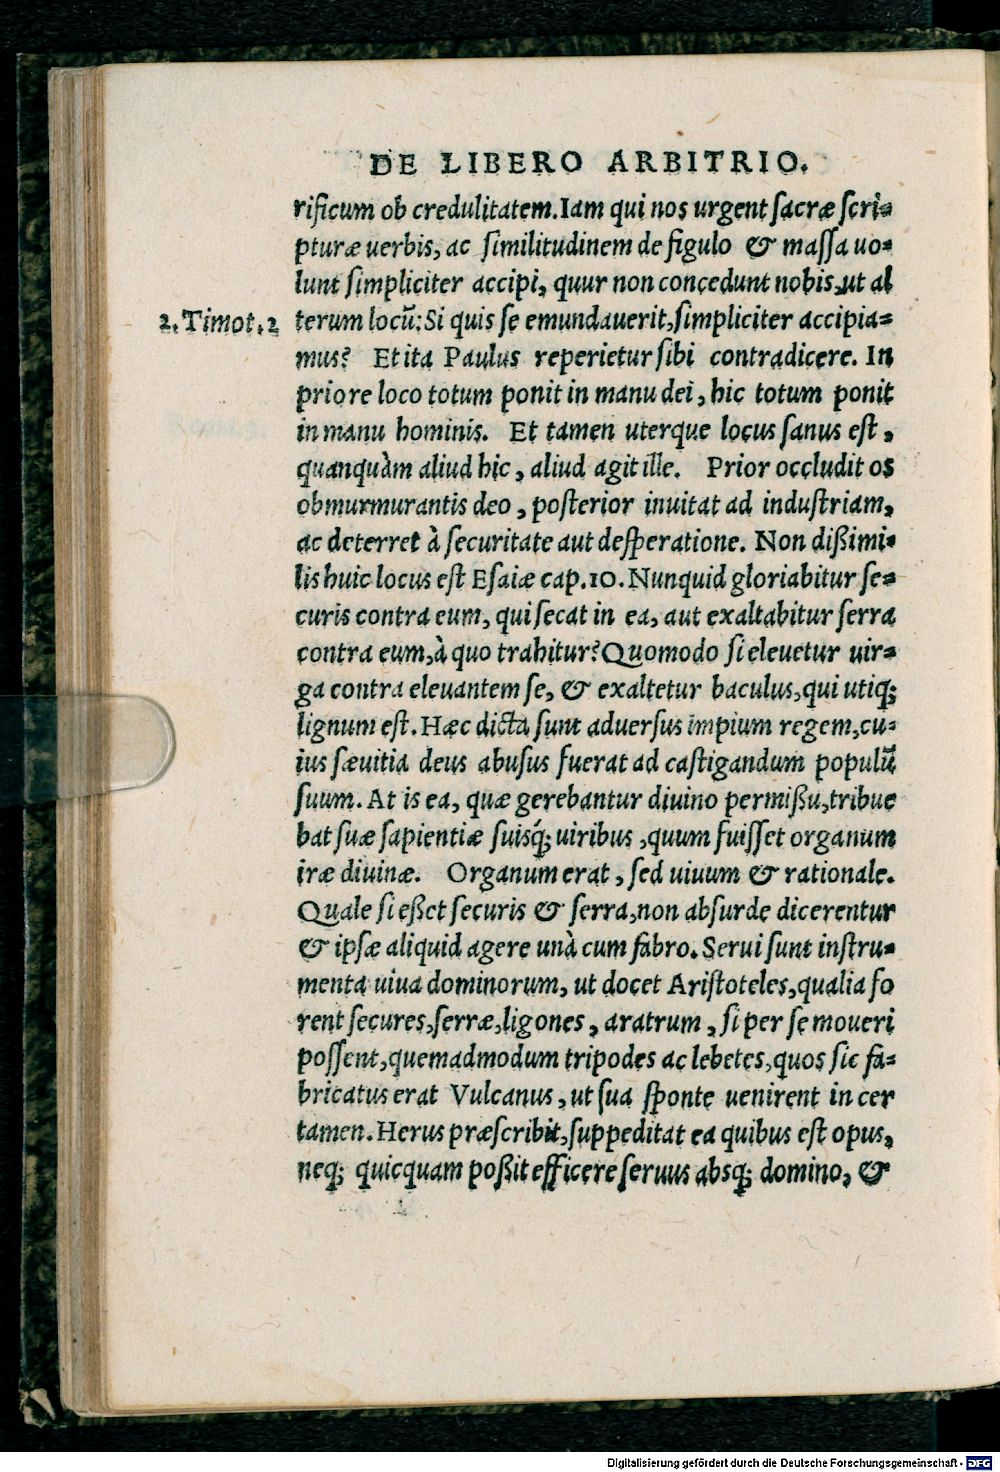 DE LIBERO ARBITRIO.
rificum ob credulitatem. Iam qui nos urgent sacræ scri-
pturæ uerbis, ac similitudinem de figulo & massa uo-
lunt simpliciter accipi, quur non concedunt nobis, ut al
2. Timot. 2
terum locũ: Si quis se emundauerit, simpliciter accipia-
mus? Et ita Paulus reperietur sibi contradicere. In
priore loco totum ponit in manu dei, hic totum ponit
in manu hominis. Et tamen uterque locus sanus est,
quanquàm aliud hic, aliud agit ille. Prior occludit os
obmurmurantis deo, posterior inuitat ad industriam,
ac deterret à securitate aut desperatione. Non dißimi-
lis huic locus est Esaiæ cap. 10. Nunquid gloriabitur se-
curis contra eum, qui secat in ea, aut exaltabitur serra
contra eum, à quo trahitur? Quomodo si eleuetur uir-
ga contra eleuantem se, & exaltetur baculus, qui utiq;
lignum est. Hæc dicta sunt aduersus impium regem, cu-
ius sæuitia deus abusus fuerat ad castigandum populũ
suum. At is ea, quæ gerebantur diuino permißu, tribue
bat suæ sapientiæ suisq́; uiribus, quum fuisset organum
iræ diuinæ. Organum erat, sed uiuum & rationale.
Quale si eßet securis & serra, non absurde dicerentur
& ipsæ aliquid agere unà cum fabro. Serui sunt instru-
menta uiua dominorum, ut docet Aristoteles, qualia fo
rent secures, serræ, ligones, aratrum, si per se moueri
possent, quemadmodum tripodes ac lebetes, quos sic fa-
bricatus erat Vulcanus, ut sua sponte uenirent in cer
tamen. Herus præscribit, suppeditat ea quibus est opus,
neq; quicquam poßit efficere seruus absq; domino, &
Digitalisierung gefördert durch die Deutsche Forschungsgemeinschaft - DFG